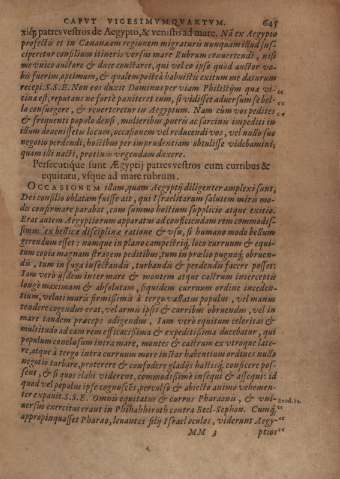 CAPVT VIGESIMVMQVARTVM. 645
xiq́; patres vestros de Aegypto, & venistis ad mare. Nã ex Aegypto
profectis et in Cananaeam regionem migraturis nunquam illud sus-
ciperetur consilium itineris versus mare Rubrum convertendi, nisi
me vnico auctore & duce constaret, qui vel eo ipso quòd auctor va-
bis fuerim, optimum, & qualem postea habuistis exitum me daturum
recepi. S.S.E. Non eos duxit Dominus per viam Philisthijm quae vi-
cina est, reputans ne fortè paeniteret eum, si vidisset aduersum se bel-
la consurgere, & reuerteretur in Aegyptum. Nam cùm vos pedites
& frequenti populo densi, mulieribus, pueris ac sarcinis impediti in
illum deuenissetis locum, occasionem vel reducendi vos, vel nullo suo
negotio perdendi, hostibus per imprudentiam obtulisse videbamini,
quam illi nacti, protinus vrgendam duxere.
Persecutique sunt AEgyptij patres vestros cum curribus &
equitatu, vsque ad mare rubrum.
OCCASIONEM illam, quam Aegyptij diligenter amplexi sunt,
Dei consilio oblatam fuisse ait, qui Israelitarum salutem miris mo-
dis confirmare parabat, cum summo hostium supplicio atque exitio.
Erat autem Aegyptiorum apparatus ad conficiendam rem commodis-
simus, ex bellica disciplinae ratione & vsu, si humano modo bellum
gerendum esset: nanque in plano campestriq́; loco curruum & equi-
tum copia magnam stragem peditibus, tum in praelio pugnaq́; obruen-
dis, tum in fuga insectandis, turbandis & perdendis facere posset:
Iam verò ijsdem inter mare & montem atque castrum interceptis
longè maximam & absolutam, siquidem curruum ordine inceden-
tium, velut muris firmissimis à tergo vastari populus, vel manus
tendere cogendus erat, vel armis ipsis & curribus obruendus, vel in
mare tandem praeceps adigendus. Iam verò equitum celeritas &
multitudo ad eam rem efficacissima & expeditissima ducebatur, qui
populum conclusum intra mare, montes & castrum ex vtroque late-
re, atque à tergo intra curruum mare instar habentium ordines nullo
negotio turbare, proterere & confodere gladijs hastisq́; conficere pos-
sent, & si quos elabi viderent, commodissimè insequi & assequi: id
quod vel populus ipse cognoscens, perculso & abiecto animo vehemen-
ter expauit. S.S.E. Omnis equitatus & currus Pharaonis, & vni-
uersus exercitus erant in Phihahhiroth contra Beel-Sephon. Cumq́;
appropinquasset Pharao, leuantes filij Israel oculos, viderunt Aegy-
MM 3 ptios
Exod. 14.